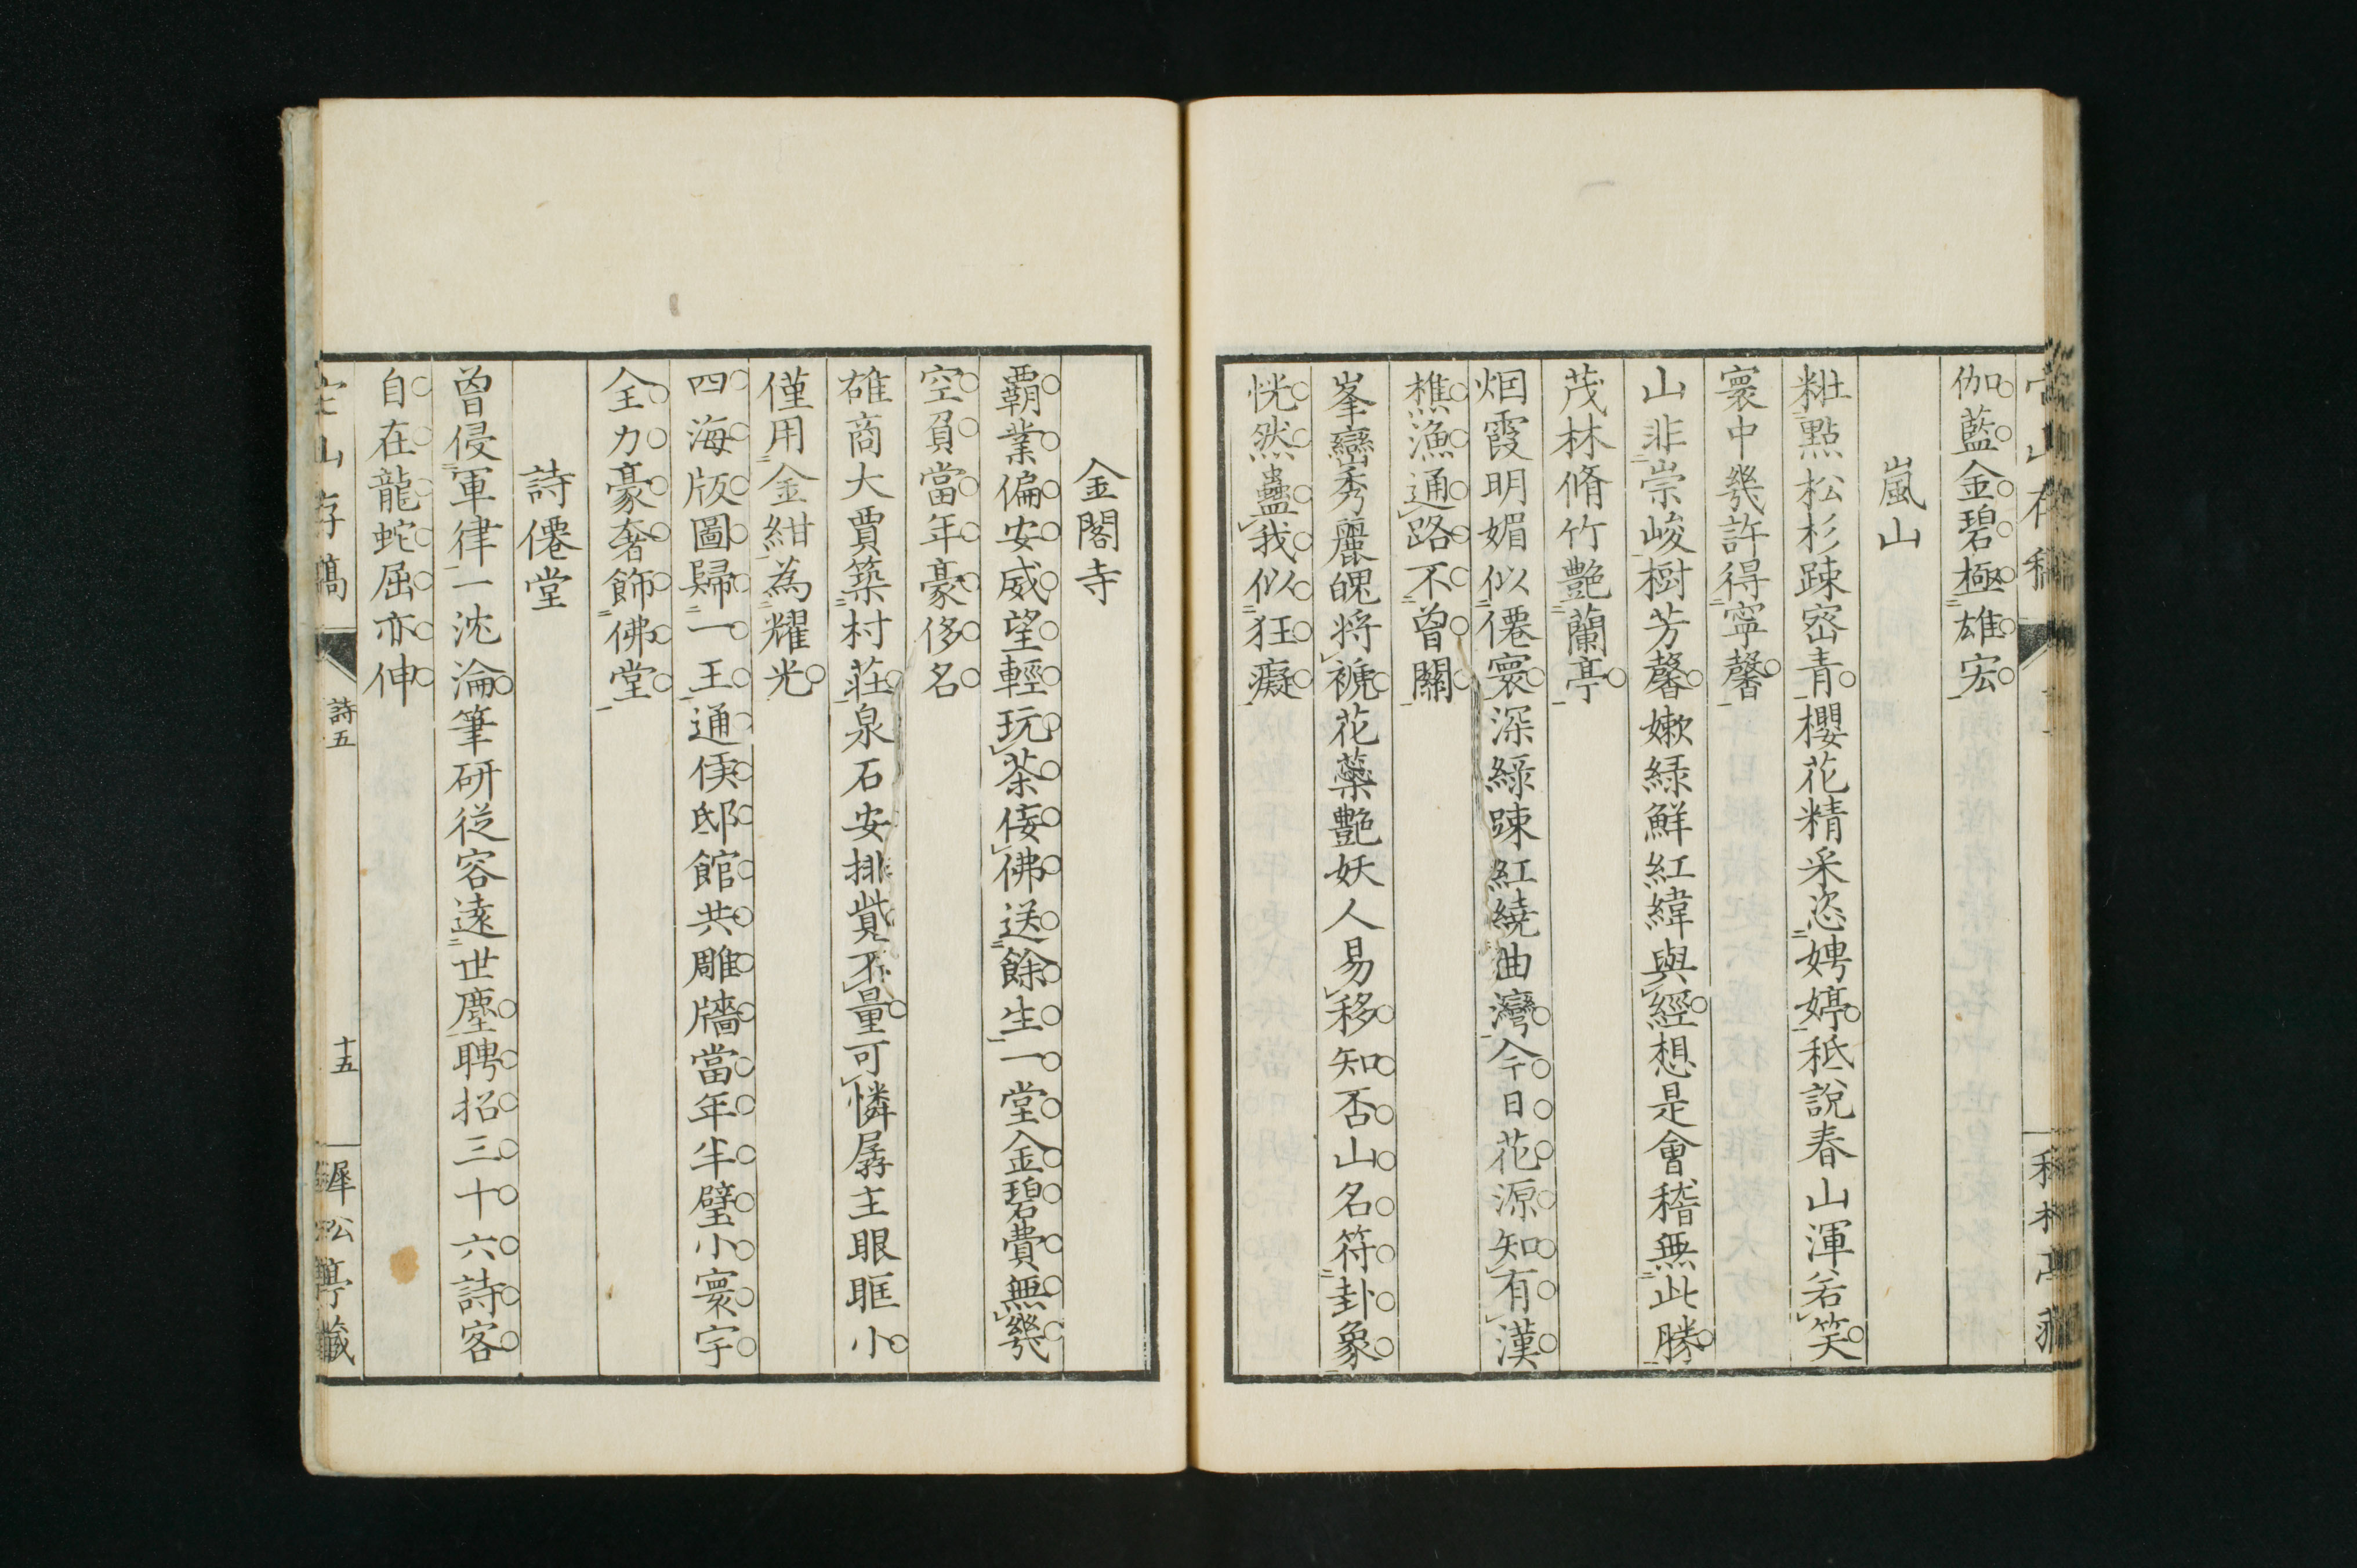 伽藍金碧極雄宏
嵐山
粧點松杉踈宻青櫻花精采恣娉婷秪說春山渾若笑
寰中幾許得寧馨
山非崇峻樹芳馨嫰緑鮮紅緯與經想是會稽無此勝
茂林脩竹艷蘭亭
烟霞明媚似僊寰深緑踈紅繞曲灣今日花源知有漢
樵漁通路不曾關
峯巒秀麗醜將褫花蘂艷妖人易移知否山名符卦象
恍然蠱我似狂癡
金閣寺
覇業偏安威望輕玩茶侫佛送餘生一堂金碧費無幾
空負當年豪侈名
雄商大賈築村莊泉石安排貲不量可憐孱主眼眶小
僅用金紺為耀光
四海版圖歸一王通侯邸館共雕牆當年半壁小寰宇
全力豪奢飾佛堂
詩僊堂
曾侵軍律一沈淪筆研從容遠世塵聘招三十六詩客
自在龍蛇屈亦伸
宕山存稿
詩五
十五
犀松亭藏